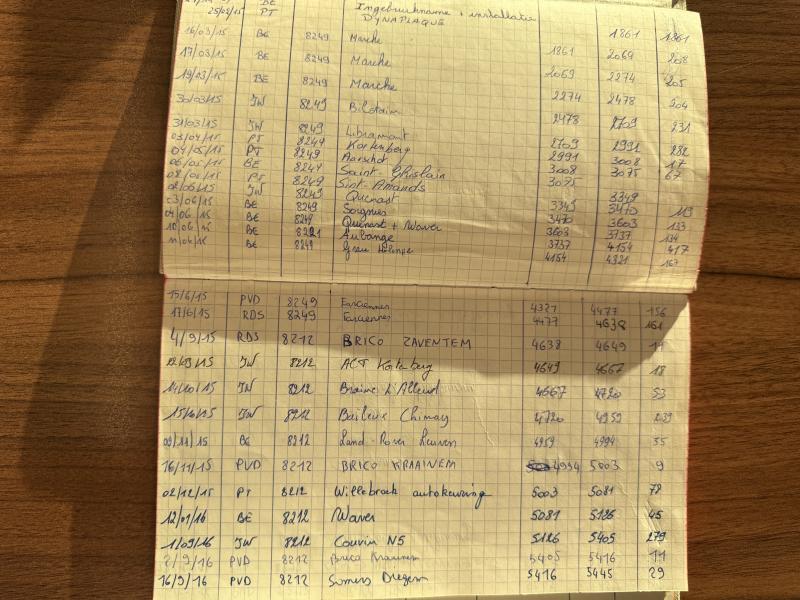 25/02/15 PT Ingebruikname + installatie
DYNAPLAQUE 1861 1861
16/03/15 BE 8249 Marche 1861 2069 208
17/03/15 BE 8249 Marche 2069 2274 205
19/03/15 BE 8249 Marche 2274 2478 204
30/03/15 JW 8249 2478 2709 231
31/03/15 JW 8249 Libramont 2709 2991 282
03/04/15 PT 8249 Kortenberg 2991 3008 17
04/05/15 PT 8249 Aarschot 3008 3075 67
06/05/15 BE 8249 Saint-Ghislain 3075
PT 8249 Sint-Amands
02/06/15 JW 8249 Quenast 3349
03/06/15 BE 8249 Soignies 3349 3470
04/06/15 BE 8249 Quenast + Waver 3470 3603 133
10/06/15 BE 8221 Aubange 3603 3737 134
11/06/15 BE 8249 3737 4154 417
4154 4321 167
15/6/15 PVD 8249 Farciennes 4321 4477 156
17/6/15 RDS 8249 Farciennes 4477 4638 161
4/9/15 RDS 8212 BRICO ZAVENTEM 4638 4649 11
22/09/15 JW 8212 ACT Kortenberg 4649 4667 18
14/10/15 JW 8212 Braine L'Alleud 4667 4720 53
15/10/15 JW 8212 Baileux Chimay 4720 4959 239
09/11/15 BE 8212 Land-Rover Leuven 4959 4994 35
16/11/15 PVD 8212 BRICO KRAAINEM 4994 5003 9
02/12/15 PT 8212 Willebroek autokeuring 5003 5081 78
12/01/16 BE 8212 Waver 5081 5126 45
1/09/16 JW 8212 Couvin N5 5126 5405 279
2/9/16 PVD 8212 Brico Kraainem 5405 5416 11
16/9/16 PVD 8212 Somers 5416 5445 29